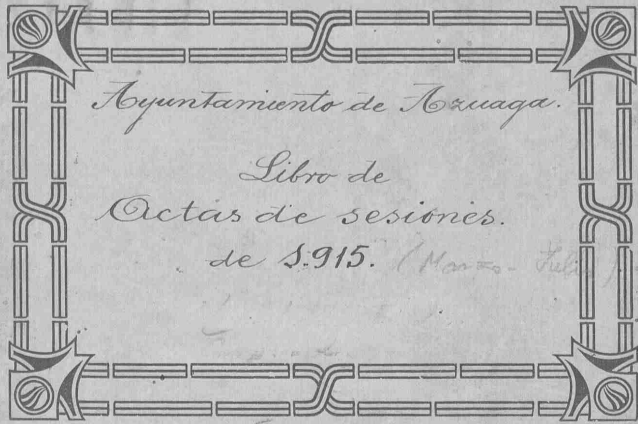 Ayuntamiento de Azuaga.
Libro de
Actas de sesiones.
de 1.915. (Marzo - Julio)